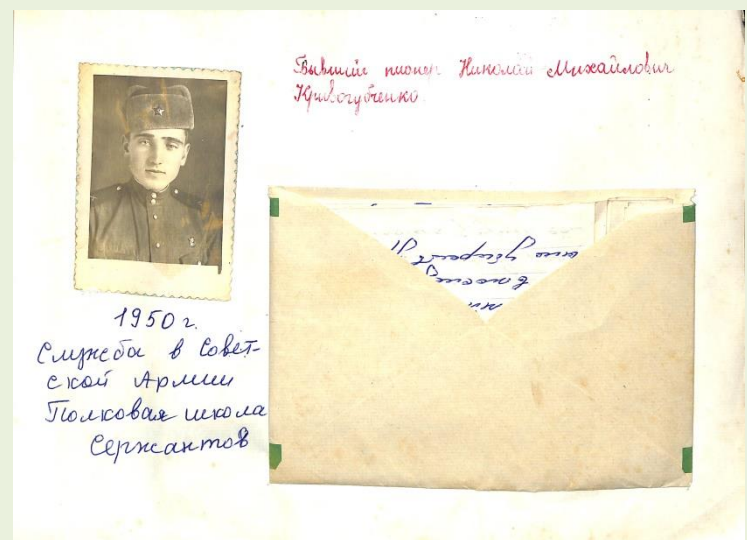 Бывший пионер Николай Михайлович
Кривогубченко
1950 г.
Служба в Совет-
ской Армии
Полковая школа
Сержантов